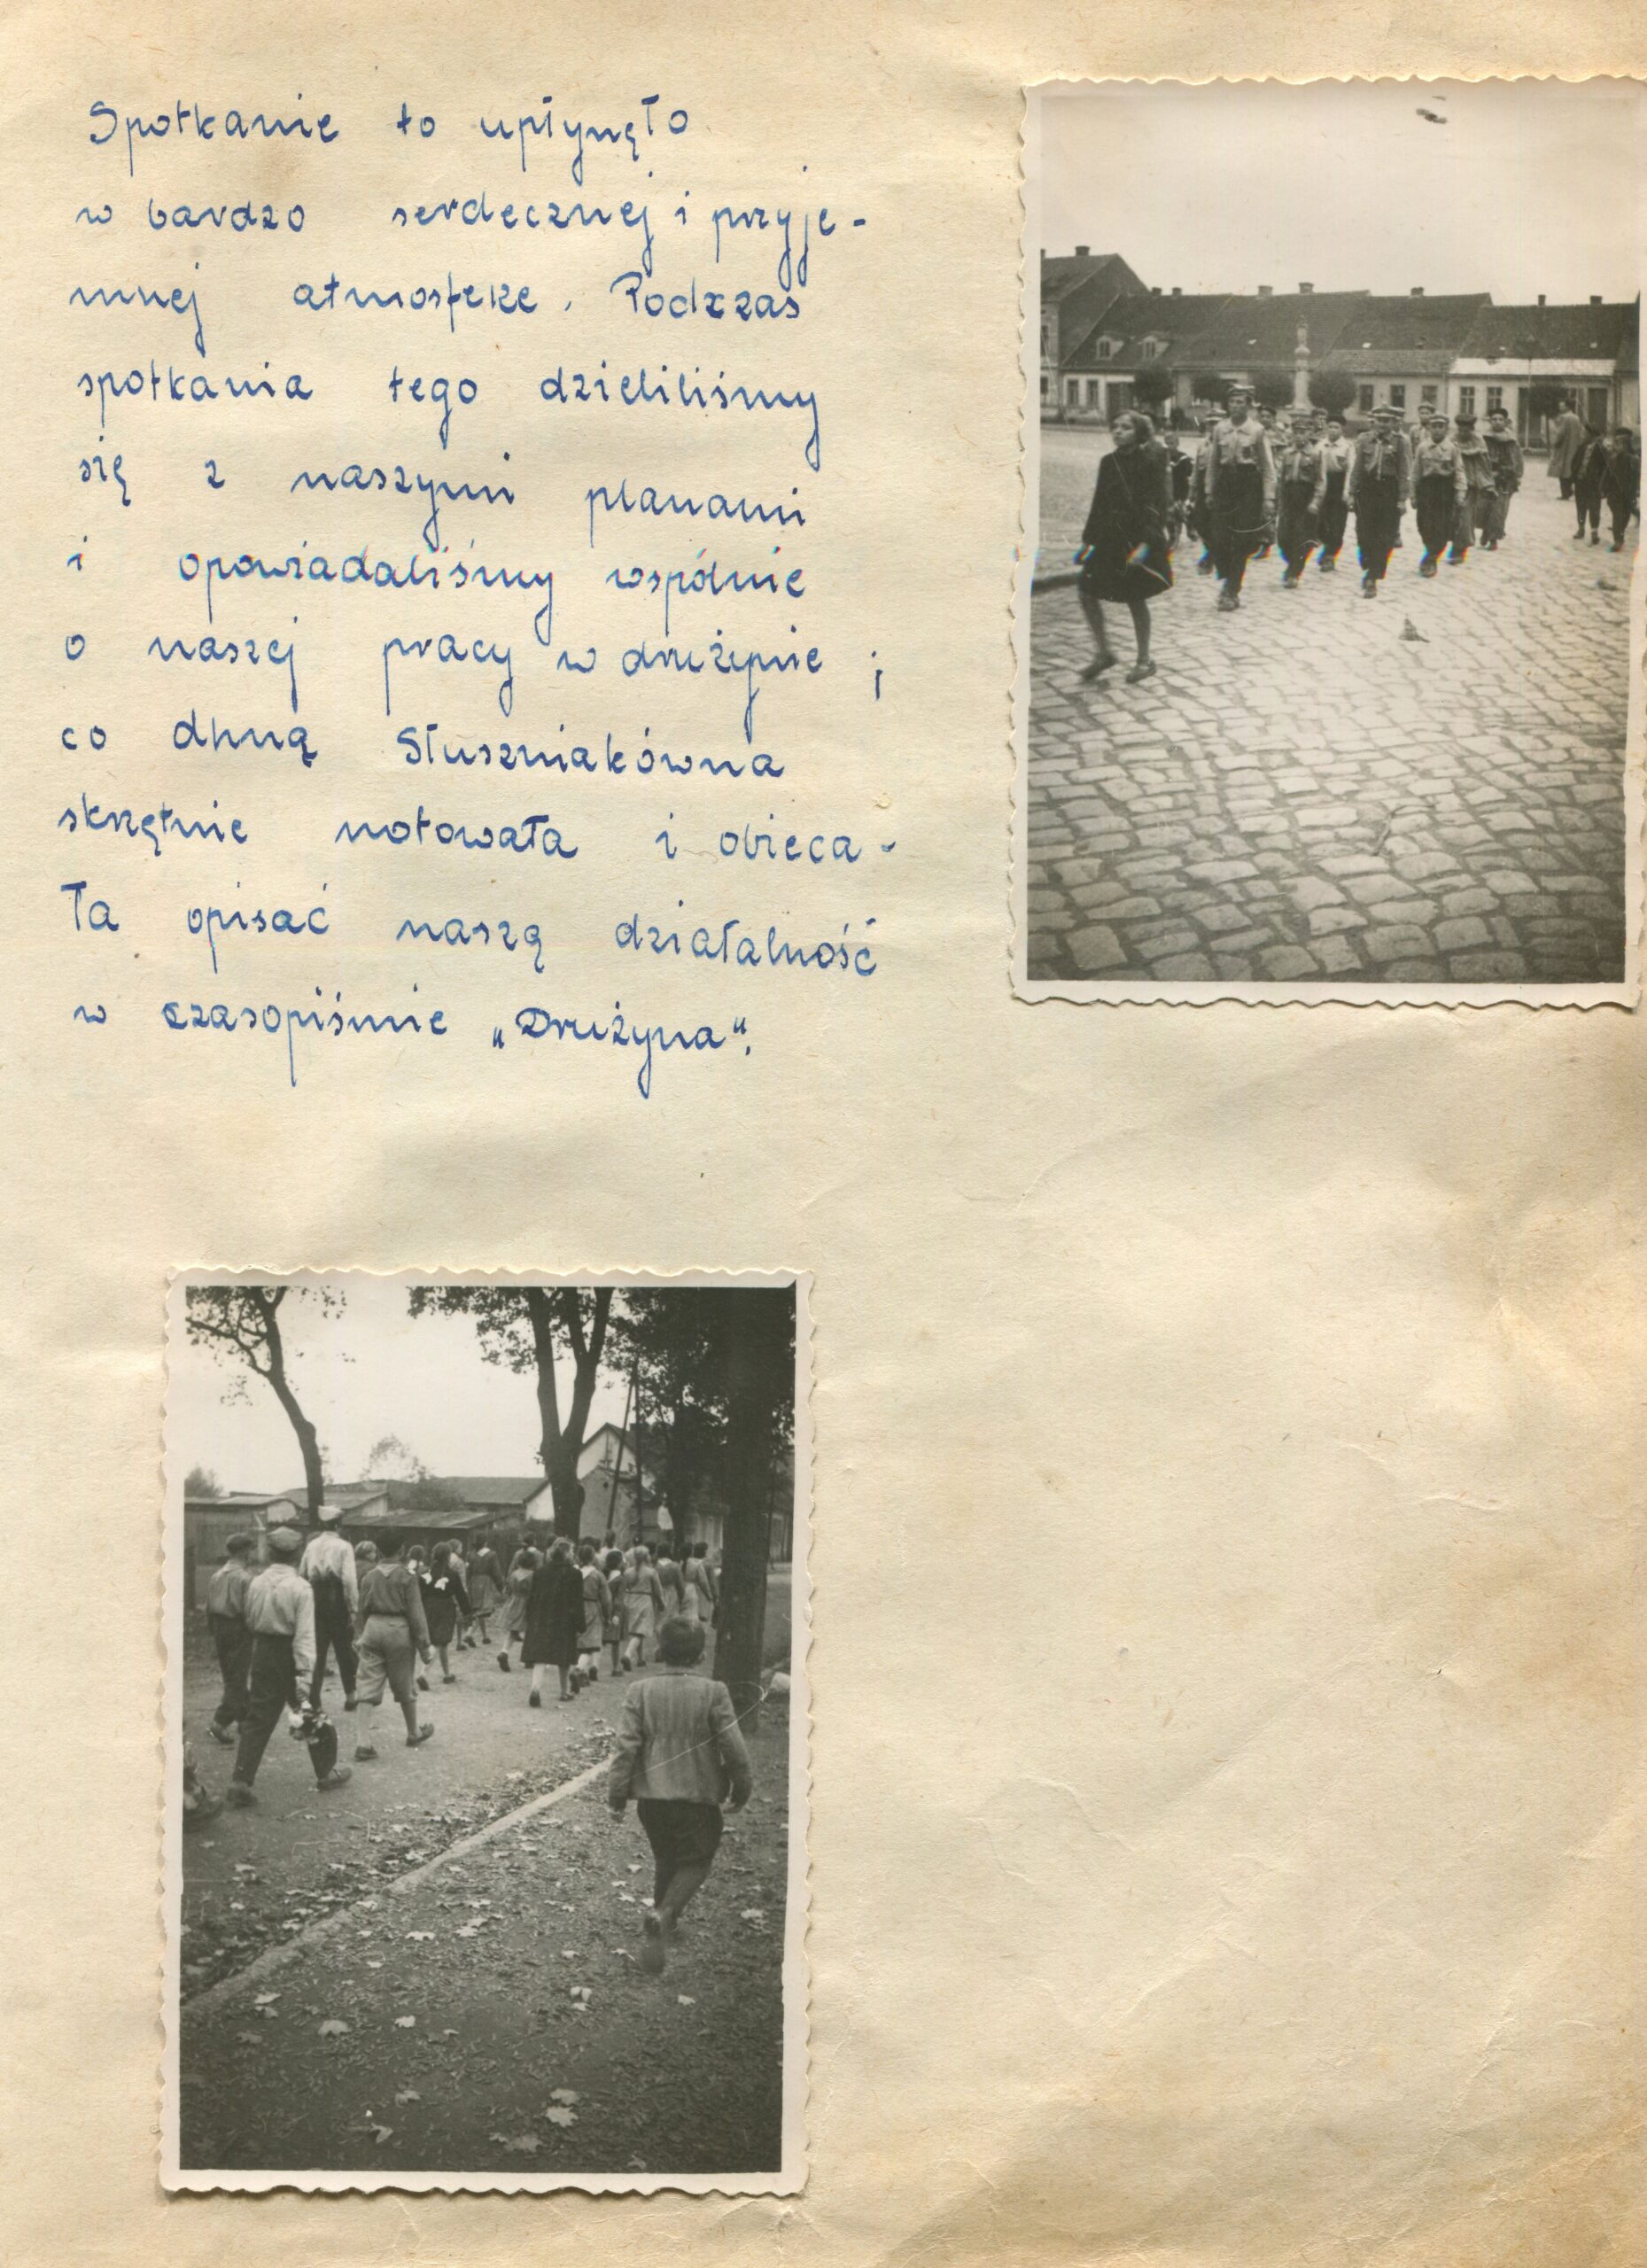 Spotkanie to upłynęło
w bardzo serdecznej i przyje-
mnej atmosferze. Podczas
spotkania tego dzieliliśmy
się z naszymi planami
i opowiadaliśmy wspólnie
o naszej pracy w drużynie ;
co dhną Słuszniakówna
skrzętnie notowała i obieca-
ła opisać naszą działalność
w czasopiśmie „Drużyna".